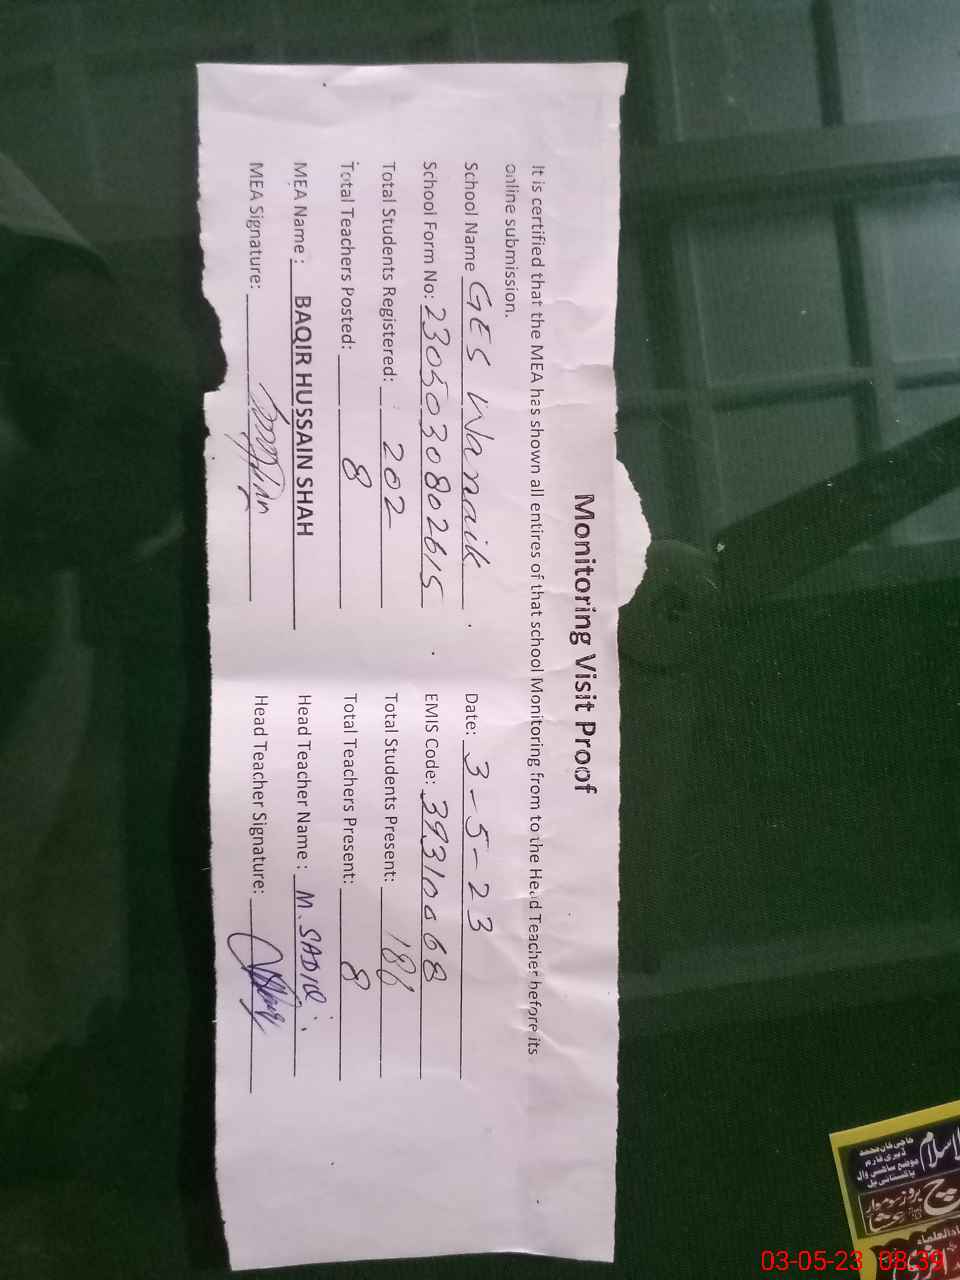 Monitoring Visit Proof
It is certified that the MEA has shown all entires of that school Monitoring from to the Head Teacher before its
online submission.
School Name GES Wanaik Date: 3-5-23
School Form No: 2305030802615 EMIS Code: 39310068
Total Students Registered: 202 Total Students Present: 186
Total Teachers Posted: 8 Total Teachers Present: 8
MEA Name: BAQIR HUSSAIN SHAH Head Teacher Name: M. SADIQ
MEA Signature: Head Teacher Signature:
حاجی خان محمد
ڈیری فارم
03-05-23 08:39